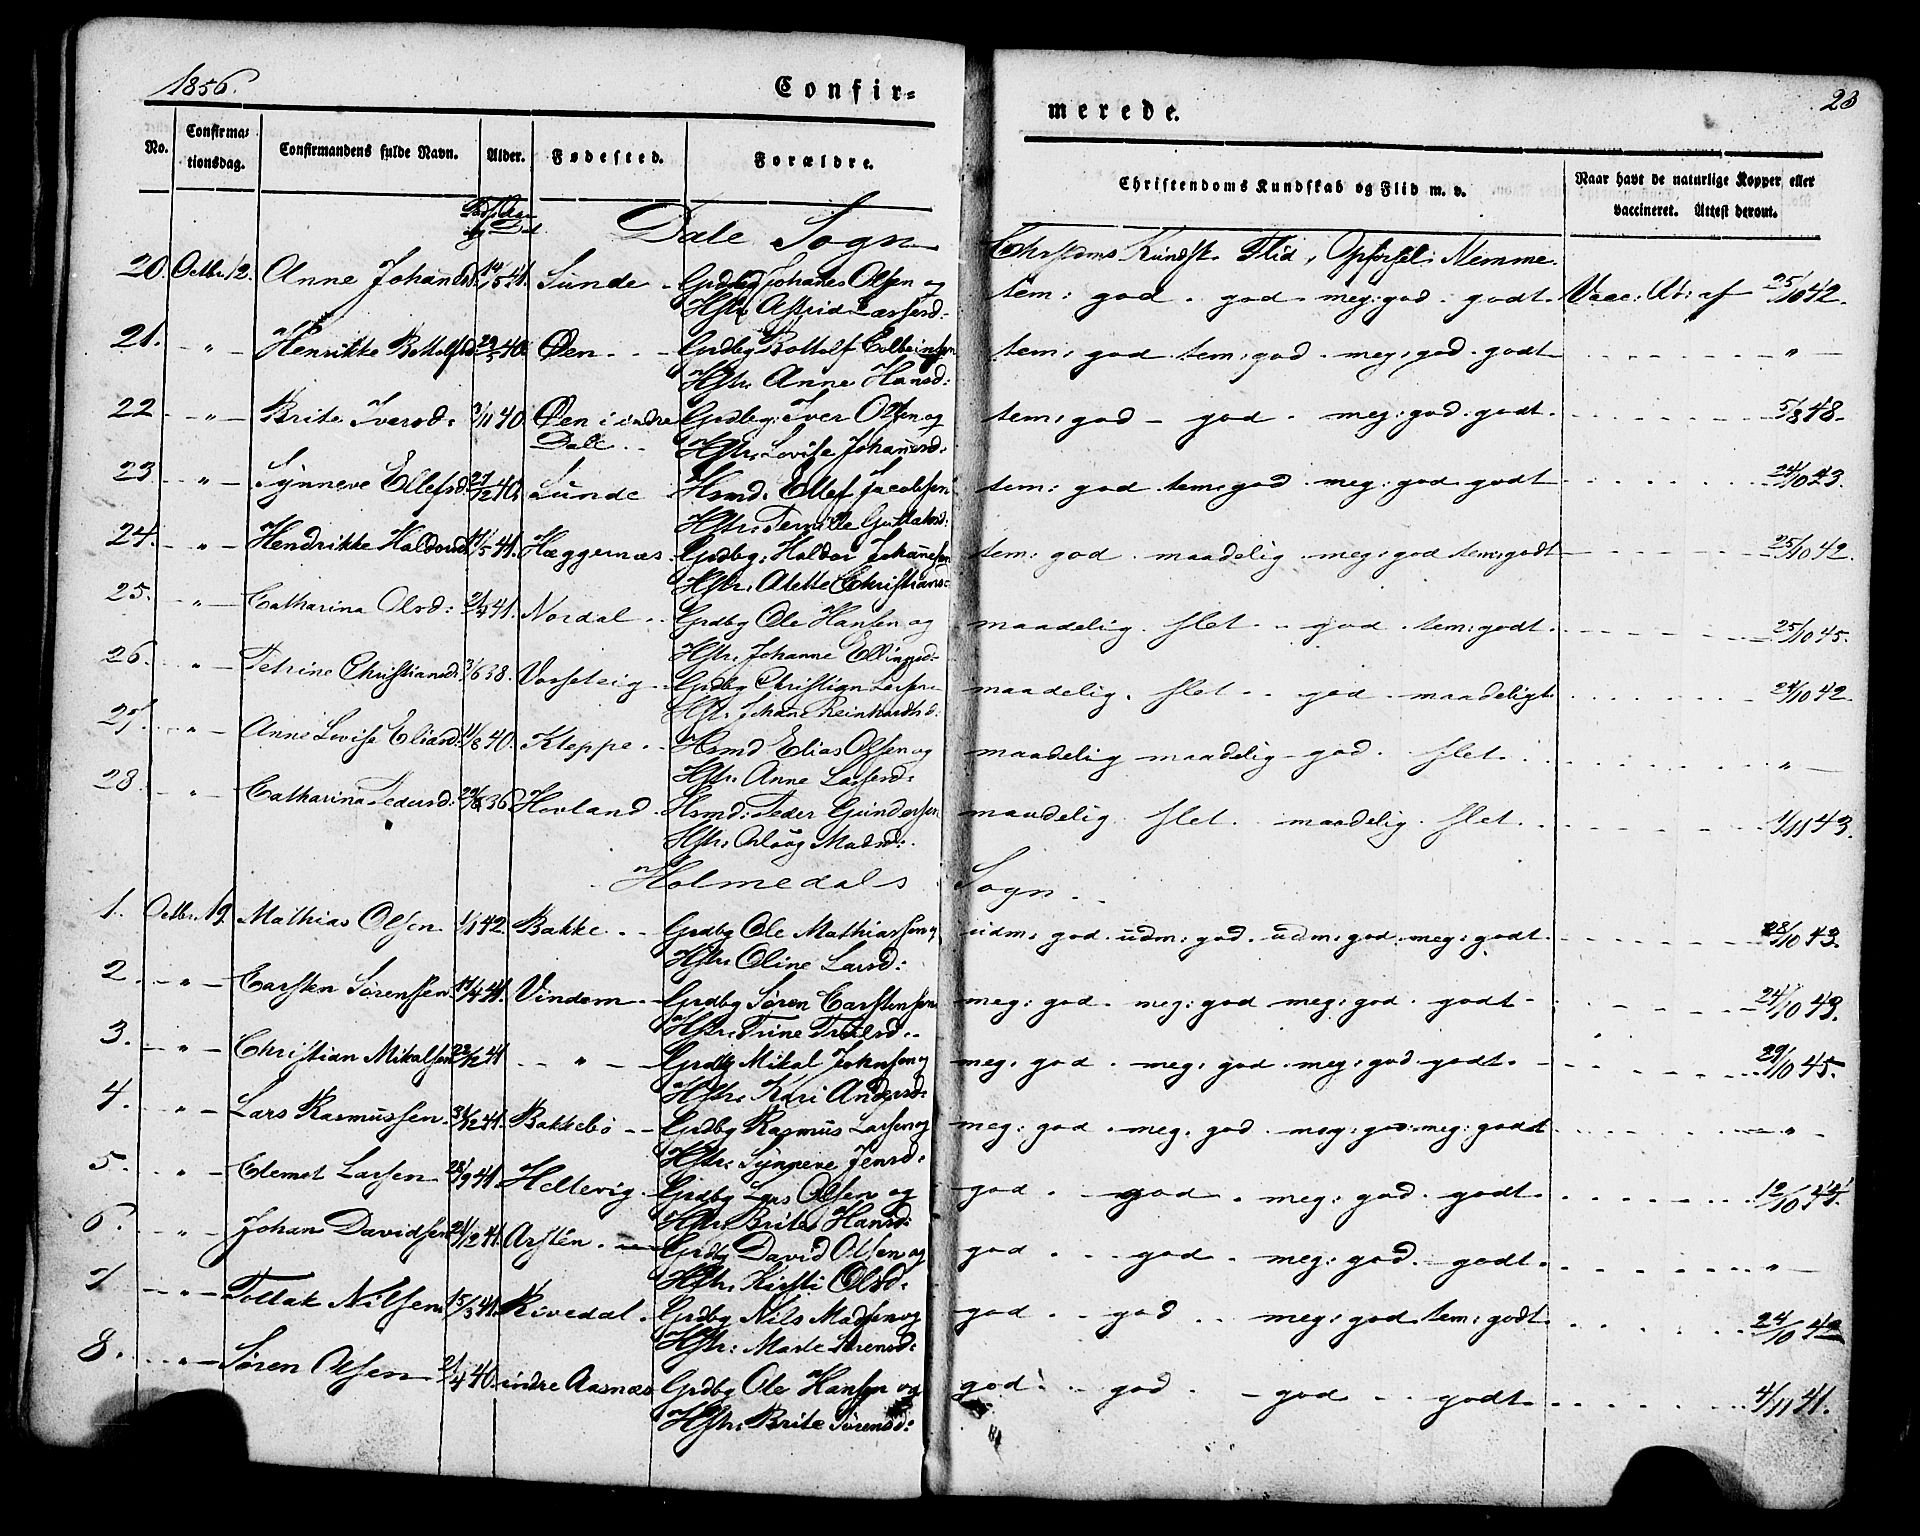 1856.
Confir=
merede.
23
No.
Confirma=
tionsdag.
Confirmandens fulde Navn.
Alder.
Fødested.
Forældre.
Christendoms Kundskab og Flid m. v.
Naar havt de naturlige Kopper eller
vaccineret. Attest derom.
Dale Sogn
Chrstoms Kundsk. Flid, Opførsel. Nemme.
20. Octbr. 12. Anne Johansd. 14/5 41. Sunde Grdbg Johanes Olsen og tem: god. god. meg: god. godt. Vacc: At: af 25/10 42.
Hstr. Astrid Larsesd.
21. " Henrikke Bottolfsd 40 Øen Grdbg Bottolf tem: god tem: god. meg: god. godt "
Hstr. Anne Hansd:
22 " Brite Iversd. /11 40 Øen i indre Grdbg: Iver Olsen og tem: god god. meg: god. godt. 5/8 48.
Dale Hstr. Lovise Johanesd:
23 " Synneve Ellefsd. 27/12 40. Sunde Hsmd. Ellef Jacobsen tem: god tem: god meg: god. godt 24/10 23.
Hstr:
24. " Hendrikke Haldorsd 11/5 41. Hæggernæs Grdbg: Haldor Johanesen tem: god maadelig meg: god tem: godt 25/10 42.
Hstr. Alette Christiansd:
25. " Catharina Olsd: 2/4 41. Nordal Grdbg Ole Hansen og maadelig. slet god tem: godt. 25/10 45.
Hstr. Johanne Ellingsd.
26. " Petrine Christiansd. 3/6 38. Vassteig Grdbg Christian Larsen maadelig. slet god maadeligt 24/10 42.
Hstr. Johane Reinhardtsd:
27. " Anne Lovise Eliasd. 11/8 40. Kleppe Hsmd Elias Olsen og maadelig maadelig god. slet. "
Hstr. Anne Larsesd.
28. " Catharina Pedersd: 36 Hovland Hsmd: Peder Gundersen maadelig. slet. maadelig. slet. 1/11 43.
Hstr: Madsd:
Holmedals Sogn
1. Octbr. 19. Mathias Olsen 1/1 42. Bakke Grdbg Ole Mathiassen og udm: god. udm: god. udm: god. meg: godt. 28/10 43.
Hstr. Oline Larsd:
2 " Carsten Sørensen. 17/4 41. Vindem Grdbg Søren Carstensen meg: god. meg: god meg: god. godt 24/10 43.
Hstr: Trine
3. " Christian Mikalsen 23/2 41 " Grdbg Mikal Johnsen og meg: god. meg: god. meg: god. godt. 29/10 45.
Hstr. Kari Andersd:
4. " Lars Rasmussen. 31/12 41. Bakkebø Grdbg Rasmus Larsen og meg: god. meg: god. meg: god. meg: godt "
Hstr. Synneve Jensd:
5. " Clemet Larsen 28/9 41 Heltevig. Grdbg Lars Olsen og god. god. meg: god. godt. 12/10
Hstr. Brite Hansd:
6. " Johan Davidsen 21/2 41. Arsten. Grdbg David Olsen og god. god. meg: god. godt. "
Hstr. Kirsti Olsd:
7 " Tollak Nilsen 15/3 41. Rivedal. Grdbg Nils Madsen og god god meg: god. tem: godt. 24/10 42
Hstr: Marte Sørensd:
8. " Søren Olsen 2/4 40. indre Aasnæs Grdbg Ole Hansen og god. god. god godt. 4/11 41.
Hstr. Brite Sørensd: